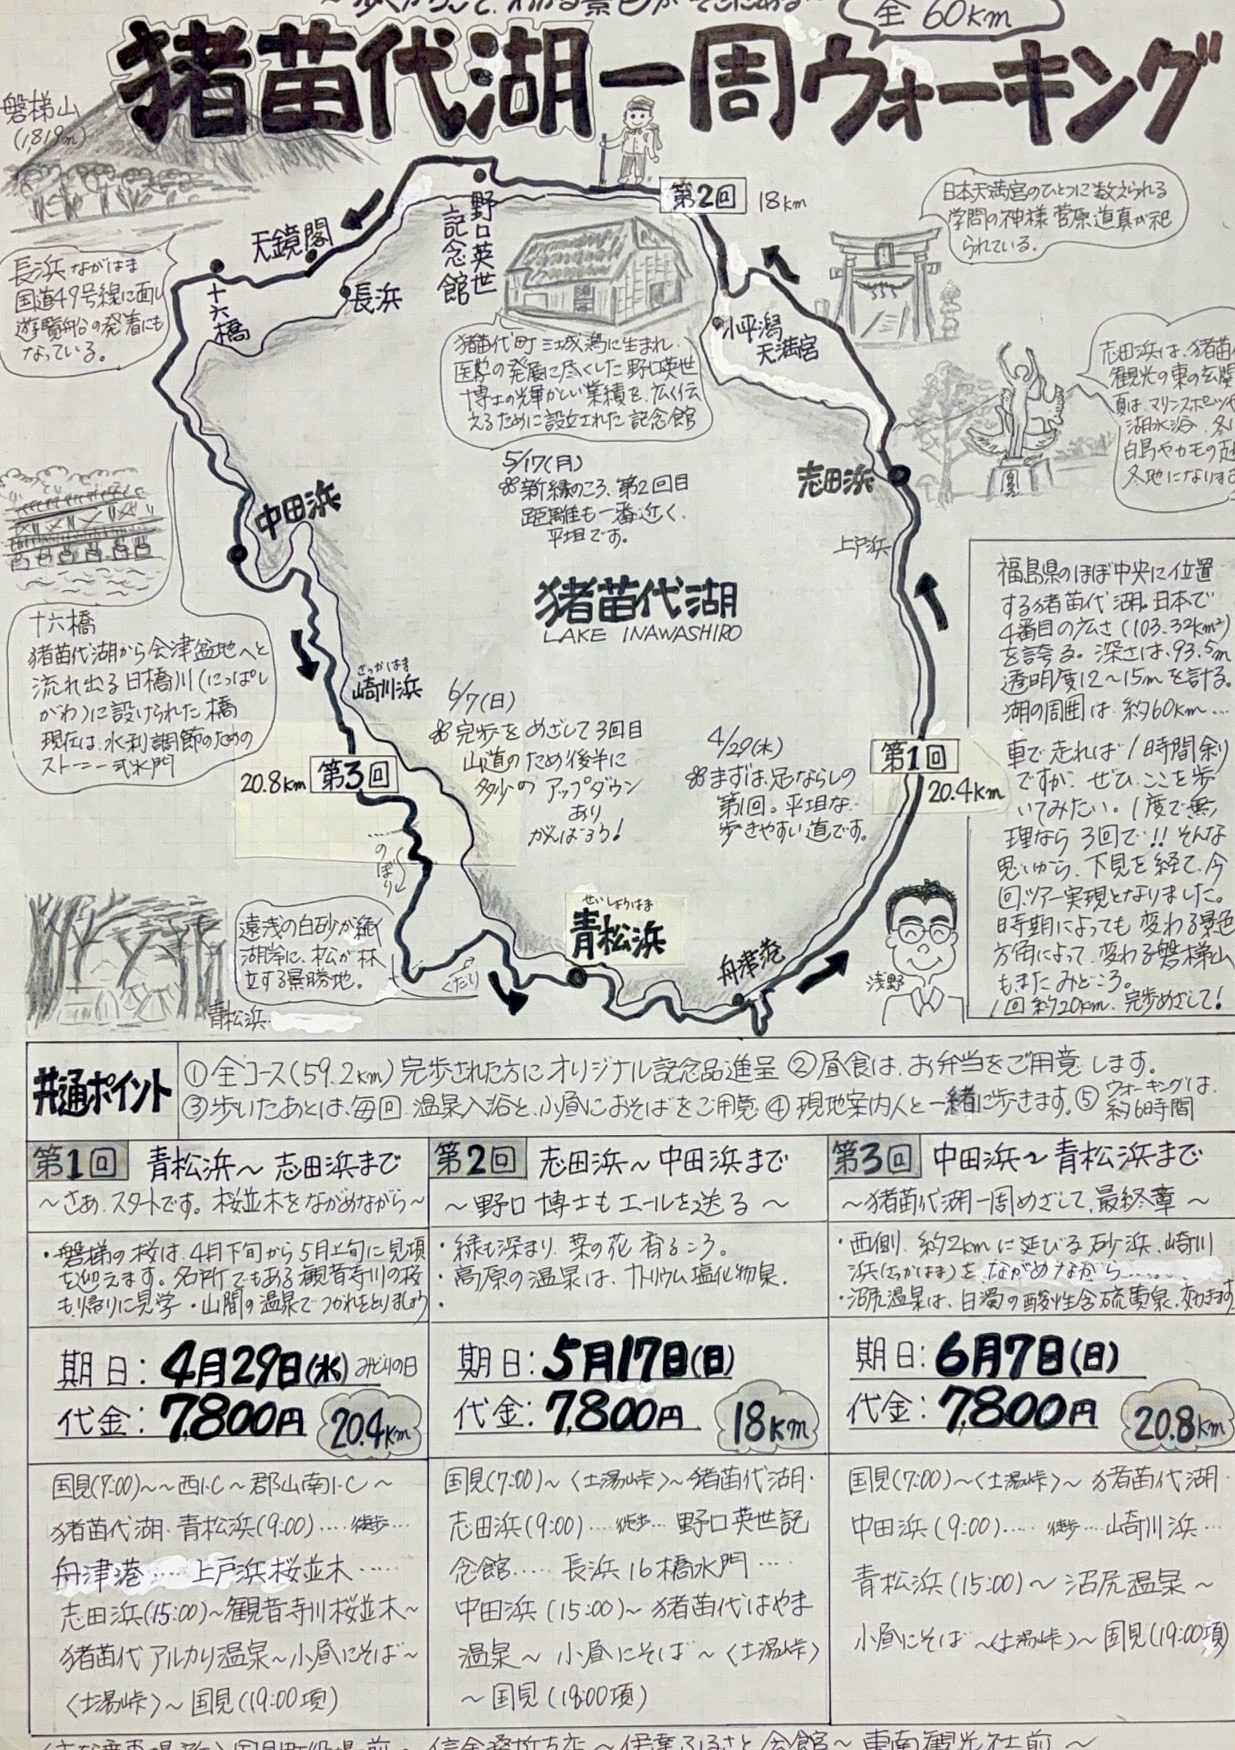 全60km
猪苗代湖一周ウォーキング
磐梯山
(1,819m)
第2回 18km
日本天満宮のひとつに数えられる
学問の神様 菅原道真が祀
られている。
野口英世
記念館
天鏡閣
長浜
十六橋
小平潟
天満宮
長浜 ながはま
国道49号線に面し
遊覧船の発着にも
なっている。
猪苗代町 三城潟に生まれ、
医学の発展に尽くした野口英世
博士の輝かしい業績を、広く伝
えるために設立された記念館
志田浜は、猪苗代
観光の東の玄関
夏は、マリンスポーツや
湖水浴、冬は
白鳥やカモの越
冬地になります
5/17(月)
※新緑のころ、第2回目
距離も一番近く、
平坦です。
志田浜
上戸浜
中田浜
猪苗代湖
LAKE INAWASHIRO
十六橋
猪苗代湖から会津盆地へと
流れ出る日橋川(にっぱし
がわ)に設けられた橋
現在は、水利調節のための
ストーニー式水門
さっかはま
崎川浜
6/7(日)
※完歩をめざして3回目
山道のため後半に
多少の アップダウン
あり
がんばろう!
4/29(水)
※まずは、足ならしの
第1回。平坦な、
歩きやすい道です。
20.8km 第3回
第1回
20.4km
福島県のほぼ中央に位置
する猪苗代湖。日本で
4番目の広さ(103.32km²)
を誇る。深さは、93.5m
透明度12〜15mを計る。
湖の周囲は、約60km…
車で走れば1時間余り
ですが、ぜひ、ここを歩
いてみたい。1度で無
理なら 3回で!! そんな
思いから、下見を経て、今
回、ツアー実現となりました。
時期によっても 変わる景色
方角によって、変わる磐梯山
もまた みどころ。
1回 約20km、完歩めざして!
のぼり
くだり
せいしょうはま
青松浜
舟津港
浅野
遠浅の白砂が続く
湖岸に、松が林
立する景勝地。
青松浜
共通ポイント
①全コース(59.2km)完歩された方にオリジナル記念品進呈 ②昼食は、お弁当をご用意します。
③歩いたあとは、毎回、温泉入浴と、小昼におそばをご用意 ④現地案内人と一緒に歩きます。⑤ウォーキングは、約6時間
第1回 青松浜〜志田浜まで
〜さあ、スタートです。桜並木をながめながら〜
・磐梯の桜は、4月下旬から5月上旬に見頃
を迎えます。名所でもある観音寺川の桜
もり帰りに見学・山間の温泉でつかれをとりましょう
期日:4月29日(水)みどりの日
代金:7,800円 20.4km
国見(7:00)〜〜西I.C〜郡山南I.C〜
猪苗代湖・青松浜(9:00)……徒歩…
舟津港……上戸浜桜並木……
志田浜(15:00)〜観音寺川桜並木〜
猪苗代アルカリ温泉〜小昼にそば〜
〈土湯峠〉〜国見(19:00頃)
第2回 志田浜〜中田浜まで
〜野口博士もエールを送る〜
・緑も深まり、菜の花香るころ。
・高原の温泉は、ナトリウム塩化物泉。
・
期日:5月17日(日)
代金:7,800円 18km
国見(7:00)〜〈土湯峠〉〜猪苗代湖・
志田浜(9:00)……徒歩…野口英世記
念館……長浜16橋水門……
中田浜(15:00)〜猪苗代はやま
温泉〜小昼にそば〜〈土湯峠〉
〜国見(18:00頃)
第3回 中田浜〜青松浜まで
〜猪苗代湖一周めざして、最終章〜
・西側、約2kmに延びる砂浜、崎川
浜(さっかはま)をながめながら……
・沼尻温泉は、白濁の酸性含硫黄泉、効きます
期日:6月7日(日)
代金:7,800円 20.8km
国見(7:00)〜〈土湯峠〉〜猪苗代湖・
中田浜(9:00)……徒歩…崎川浜…
青松浜(15:00)〜沼尻温泉〜
小昼にそば〜〈土湯峠〉〜国見(19:00頃)